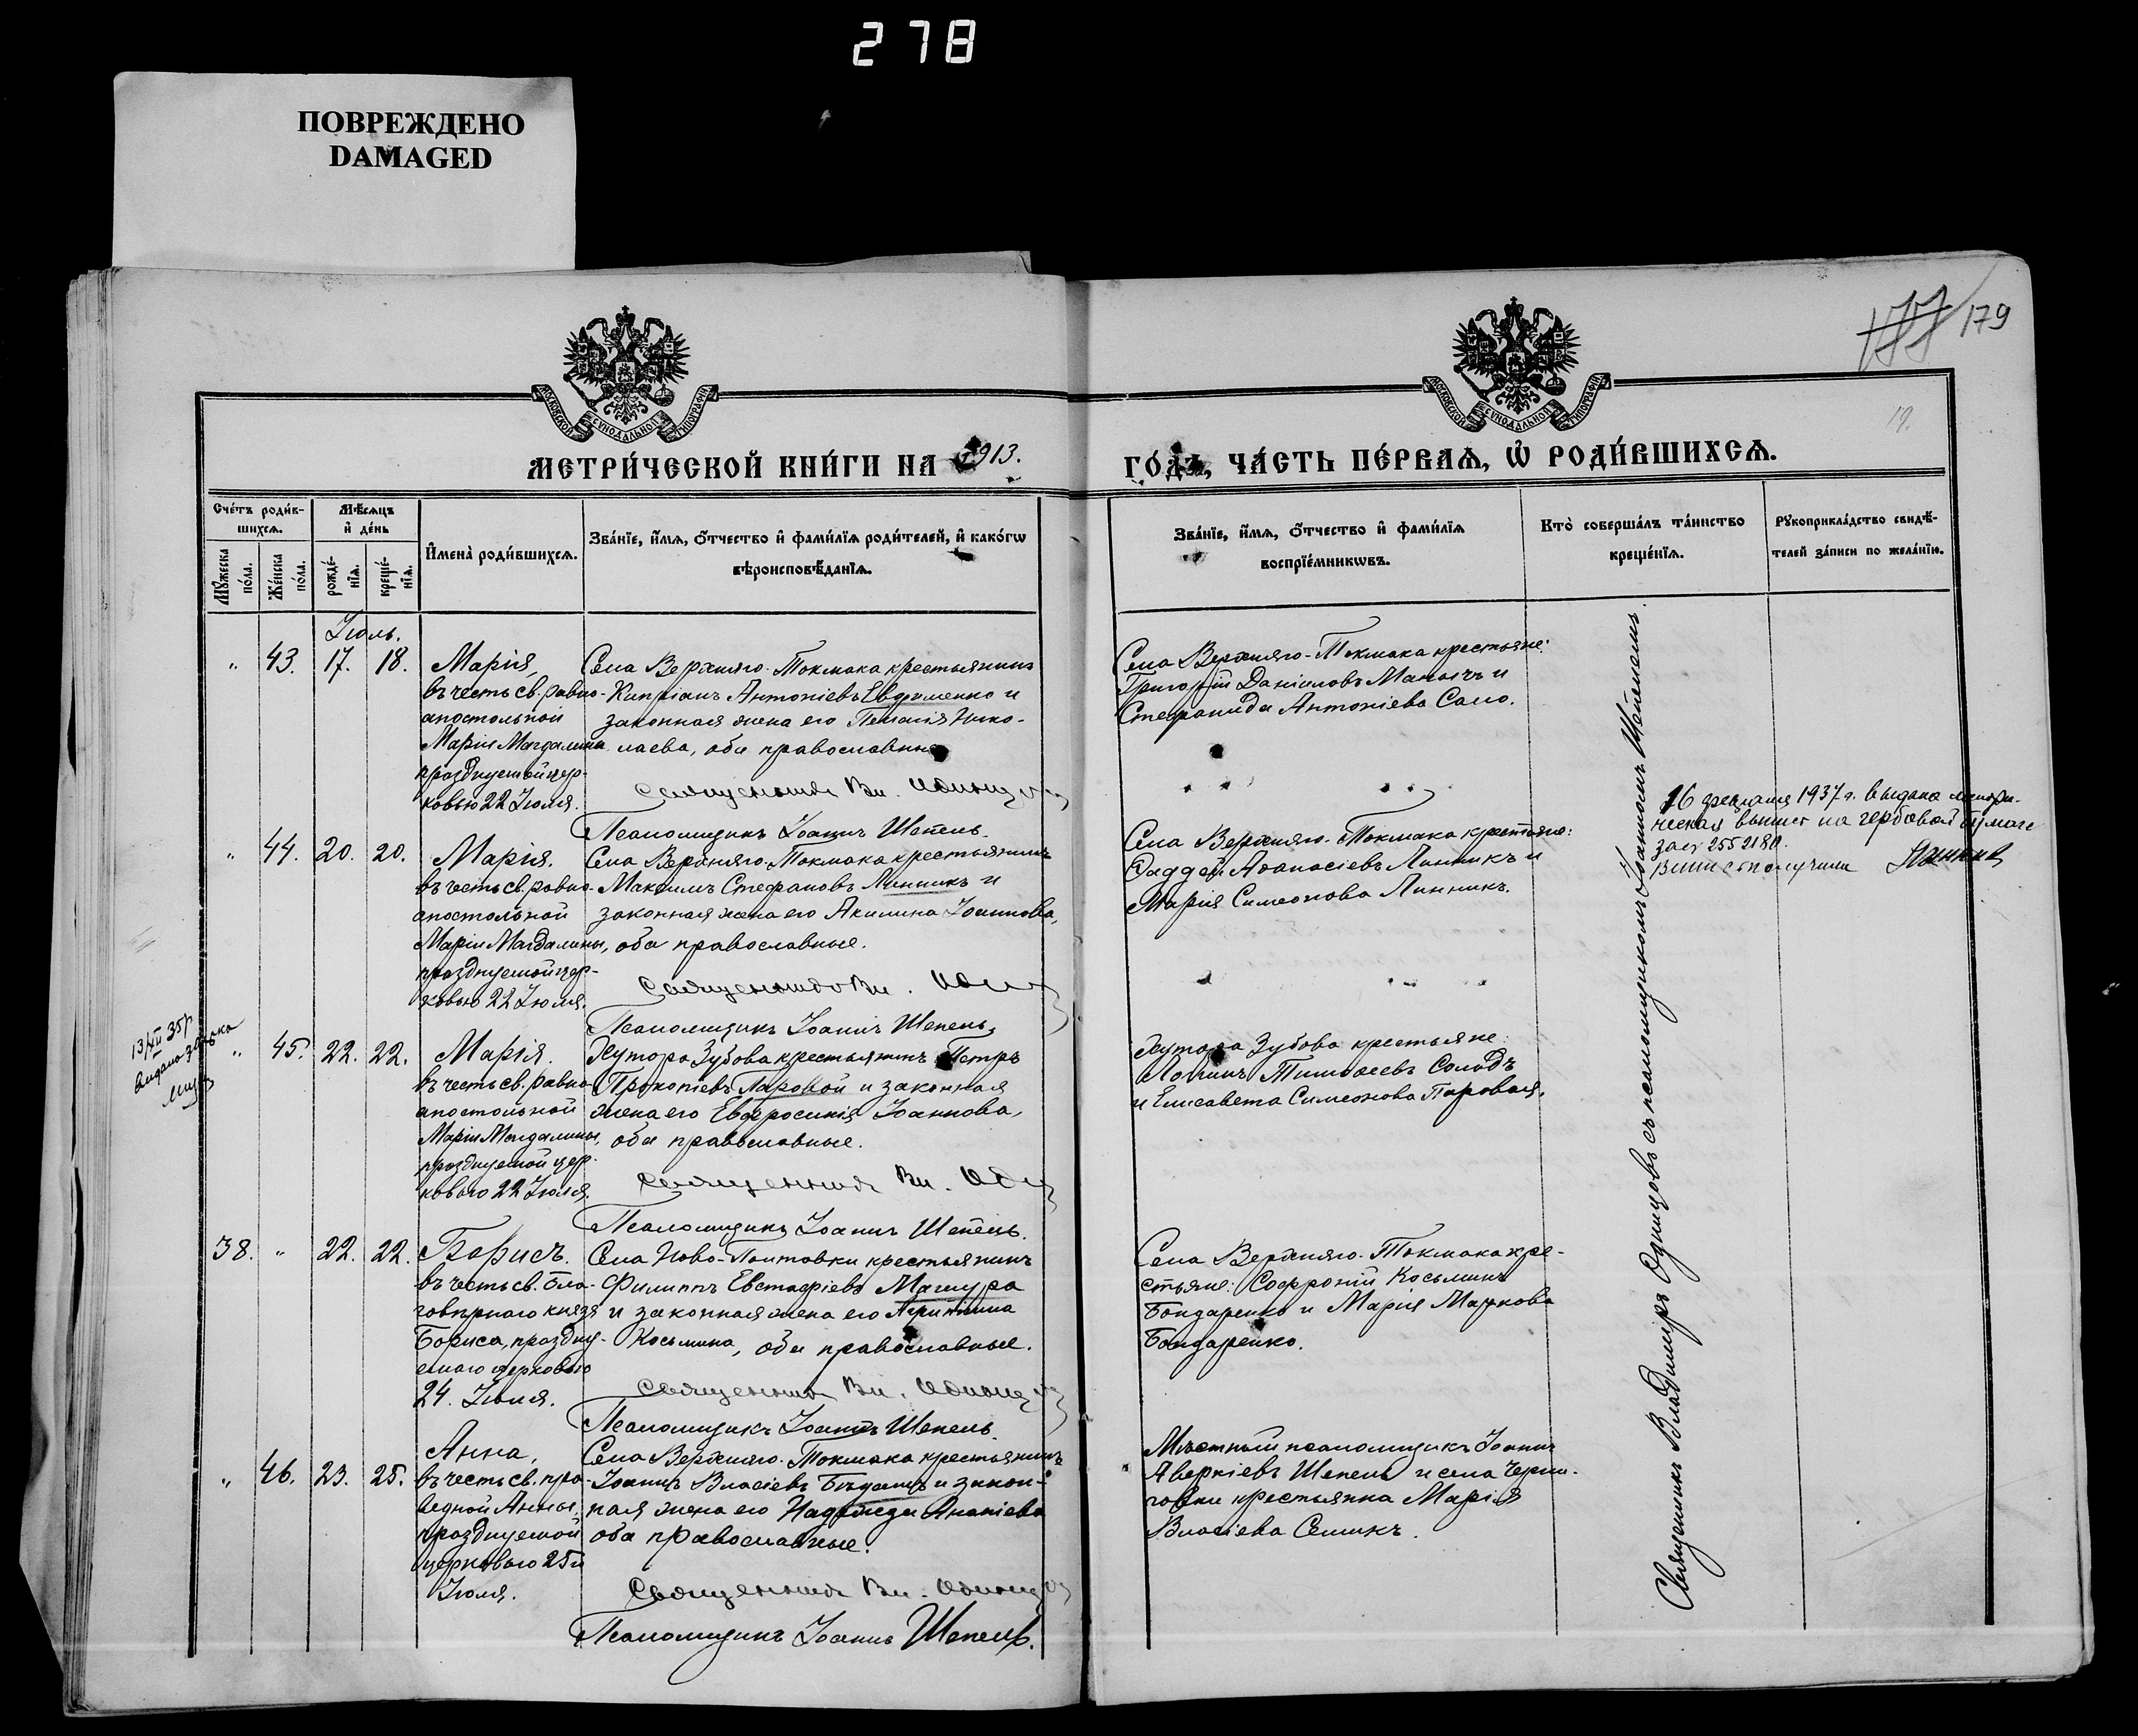 278
ПОВРЕЖДЕНО
DAMAGED
179
19.
МОСКОВСКОЙ СѴНОДАЛЬНОЙ ТИПОГРАФІИ
МОСКОВСКОЙ СѴНОДАЛЬНОЙ ТИПОГРАФІИ
МЕТРИ́ЧЕСКОЙ КНИ́ГИ НА 1913.
ГО́ДЪ, ЧА́СТЬ ПЕ́РВАѦ, Ѡ҆ РОДИ́ВШИХСѦ.
Сче́тъ роди́в-
шихсѧ.
Мꙋ́жеска
по́ла.
Же́нска
по́ла.
Мѣ́сѧцъ
и҆ де́нь
рожде́-
нїѧ.
креще́-
нїѧ.
И҆мена̀ роди́вшихсѧ.
Зва́нїе, и҆́мѧ, ѻ҆́тчество и҆ фами́лїѧ роди́телей, и҆ како́гѡ
вѣроисповѣ́данїѧ.
Зва́нїе, и҆́мѧ, ѻ҆́тчество и҆ фами́лїѧ
воспрїе́мникѡвъ.
Кто̀ соверша́лъ та́инство
креще́нїѧ.
Рꙋкоприкла́дство свидѣ́-
телей за́писи по жела́нїю.
Іюль.
" 43. 17. 18.
Марія,
въ честь св. равно-
апостольной
Маріи Магдалины
празднуемой цер-
ковью 22 Іюля.
Села Верхняго-Токмака крестьянинъ
Кипріанъ Антоніевъ Евфименко и
законная жена его Пелагія Нико-
лаева, оба православные
Священникъ Вл. Одинцовъ
Псаломщикъ Іоаннъ Шепель.
Села Верхняго-Токмака крестьяне:
Григорій Даніиловъ и
Стефанида Антоніева Сало.
" 44. 20. 20.
Марія.
въ честь св. равно-
апостольной
Маріи Магдалины,
празднуемой цер-
ковью 22 Іюля.
Села Верхняго-Токмака крестьянинъ
Максимъ Стефановъ Линникъ и
законная жена его Акилина Іоаннова,
оба православные.
Священникъ Вл.
Псаломщикъ Іоаннъ Шепель.
Села Верхняго-Токмака крестьяне:
Фаддей Аѳанасіевъ Линникъ и
Марія Симеонова Линникъ.
16 1937 г. выдана метри-
ческая выпись на гербовой бумаге
за № 2552180.
Выпись получил
13/XII 35 р
видано
" 45. 22. 22.
Марія.
въ честь св. равно
апостольной
Маріи Магдалины,
празднуемой цер-
ковью 22 Іюля.
Хутора Зубова крестьянинъ Петръ
Прокопіевъ Паровой и законная
жена его Евфросинія Іоаннова,
оба православные.
Священникъ Вл.
Псаломщикъ Іоаннъ Шепель.
Хутора Зубова крестьяне:
Тимоѳеевъ Солодъ
и Елисавета Симеонова Паровая.
38. " 22. 22.
Борисъ.
въ честь св. бла-
говѣрнаго князя
Бориса, праздну-
емаго церковью
24. Іюля.
Села Ново-Полтовки крестьянинъ
Филиппъ Евстафіевъ Мащура
и законная жена его Агриппина
Косьмина, оба православные.
Священникъ Вл. Одинцовъ
Псаломщикъ Іоаннъ Шепель
Села Верхняго-Токмака кре-
стьяне: Софроній Косьминъ
Бондаренко и Марія Маркова
Бондаренко.
" 46. 23. 25.
Анна,
въ честь св. пра-
ведной Анны,
празднуемой
церковью 25го
Іюля.
Села Верхняго-Токмака крестьянинъ
Іоаннъ Власіевъ и закон-
ная жена его Надежда Ананіева
оба православные.
Священникъ Вл. Одинцовъ
Псаломщикъ Іоаннъ Шепель.
Мѣстный псаломщикъ Іоаннъ
Аверкіевъ Шепель и села Черни-
говки крестьянка Марія
Власіева Семикъ.
Священникъ Владимиръ Одинцовъ съ псаломщикомъ Іоанномъ Шепелемъ.